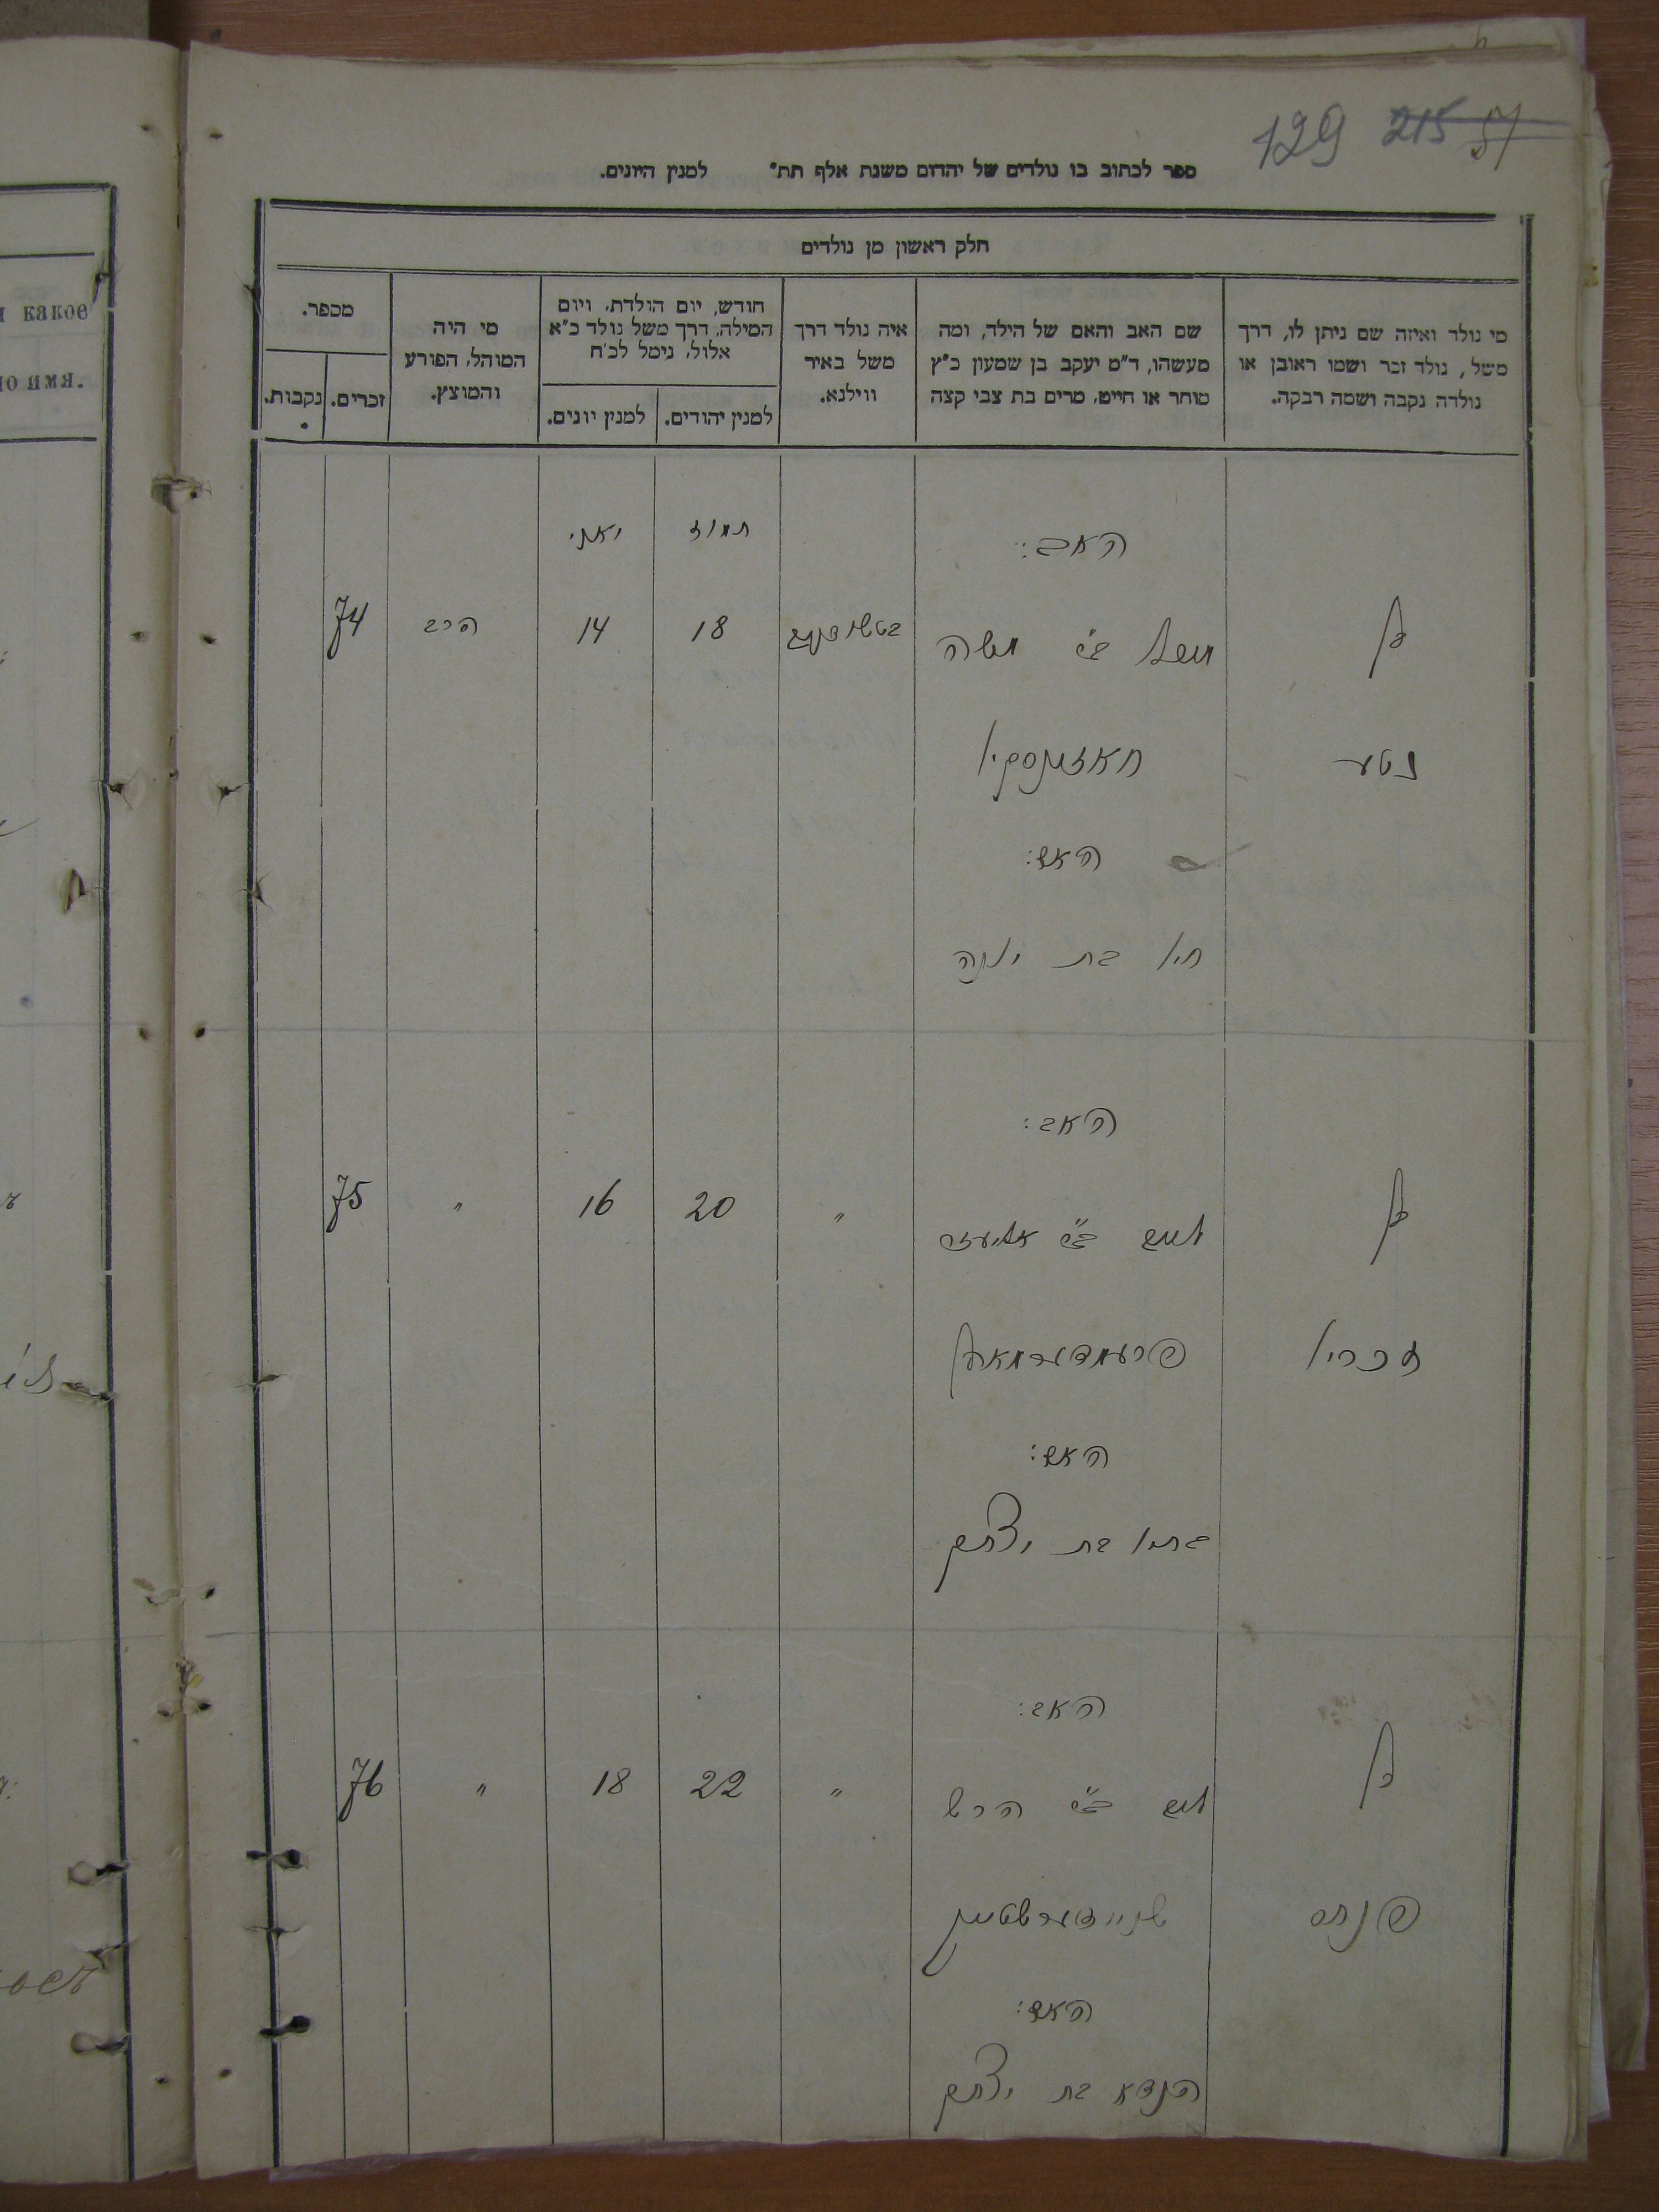 129 215 51
ספר לכתוב בו נולדים של יהדום משנת אלף תת״ למנין היונים.
חלק ראשון מן נולדים
מי נולד ואיזה שם ניתן לו, דרך
משל, נולד זכר ושמו ראובן או
נולדה נקבה ושמה רבקה.
שם האב והאם של הילד, ומה
מעשהו, ד״מ יעקב בן שמעון כ״ץ
סוחר או חייט, מרים בת צבי קצה
איה נולד דרך
משל באיר
ווילנא.
חודש, יום הולדת, ויום
המילה, דרך משל נולד כ״א
אלול, נימל לכ״ח
למנין יהודים.
למנין יונים.
מי היה
המוהל, הפורע
והמוצץ.
מספר.
זכרים.
נקבות.
האב:
תמוז
יאני
בן
משה
18
14
הרב
74
נטע
האם:
בת יונה
האב:
בן
ב״ר אליעזר
"
20
16
"
75
האם:
בת יצחק
האב:
בן
ב״ר הרש
"
22
18
"
76
פנחס
שניידערשטיין
האם:
הינדא בת יצחק
какое
имя.